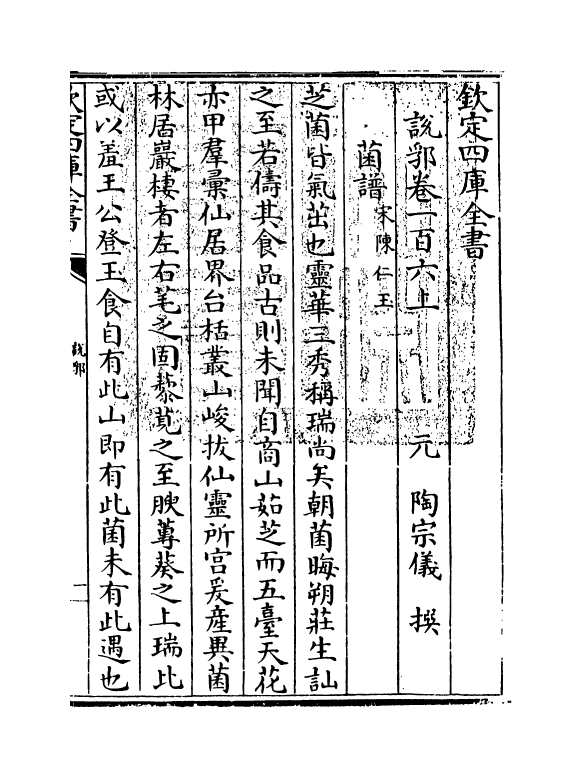 欽定四庫全書
說郛卷一百六上　　元　陶宗儀　撰
菌譜宋陳仁玉
芝菌皆氣茁也靈華三秀稱瑞尚矣朝菌晦朔莊生訕
之至若儔其食品古則未聞自商山茹芝而五臺天花
亦甲羣彙仙居界台栝叢山峻拔仙靈所宫爰産異菌
林居巖棲者左右芼之固藜莧之至腴蓴葵之上瑞比
或以羞王公登玉食自有此山即有此菌未有此遇也
欽定四庫全書
說郛
一